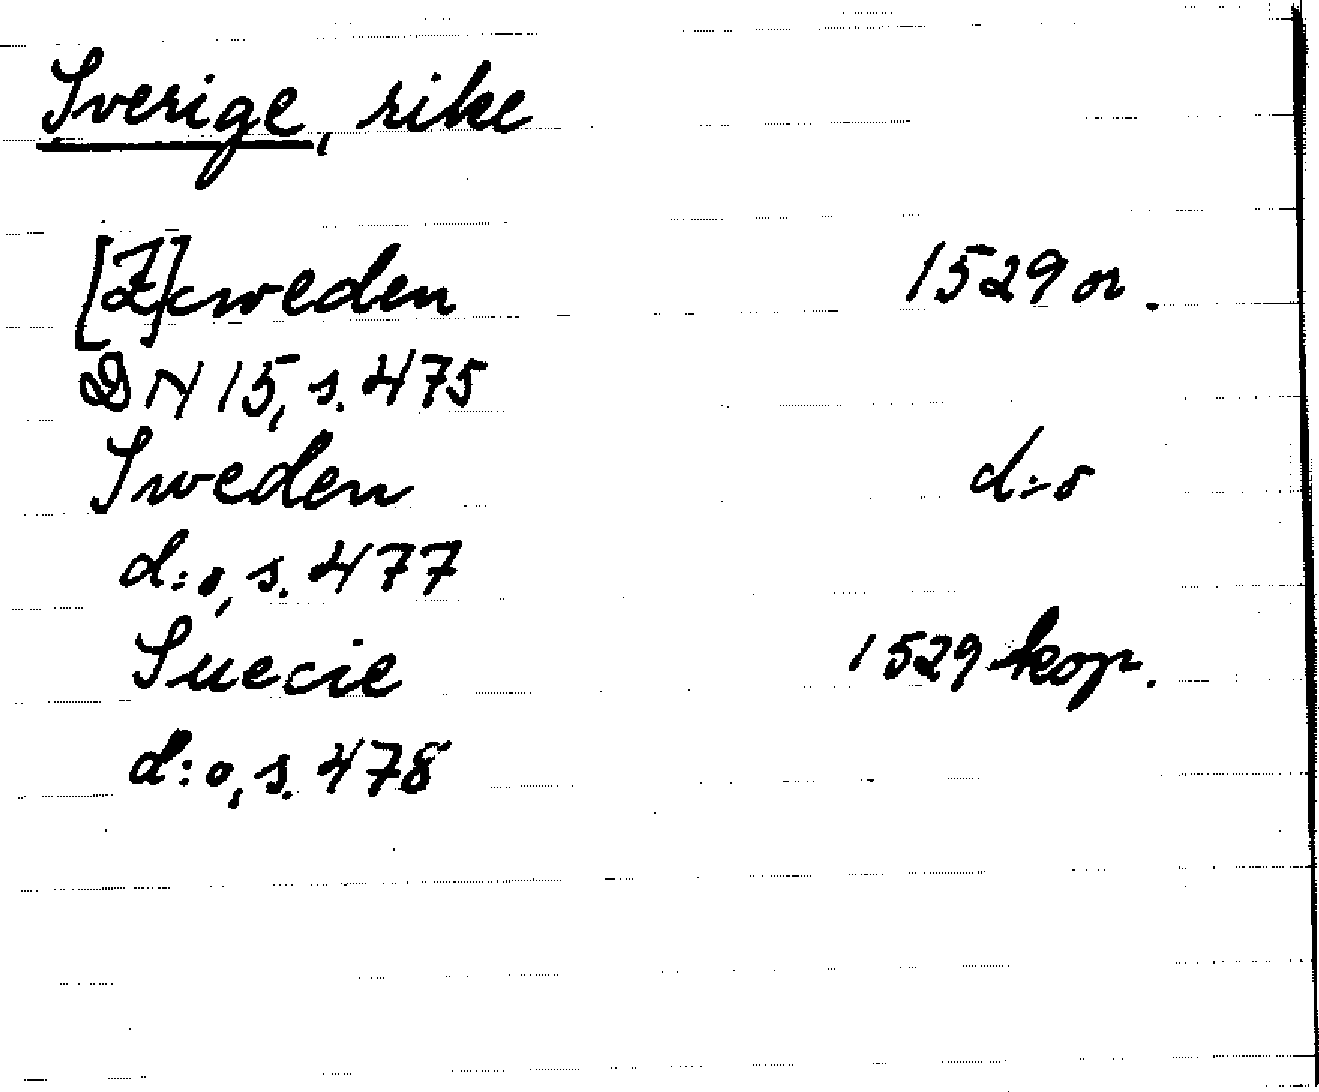 Sverige, rike
[Z]cweden 1529 or.
DN 15, s. 475
Sweden d:o
d:o, s. 477
Suecie 1529 kop.
d:o, s. 478